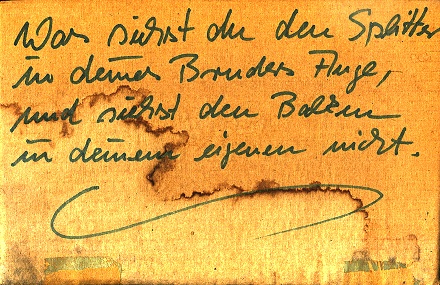 Was siehst du den Splitter
in deines Bruders Auge,
und siehst den Balken
in deinem eigenen nicht.